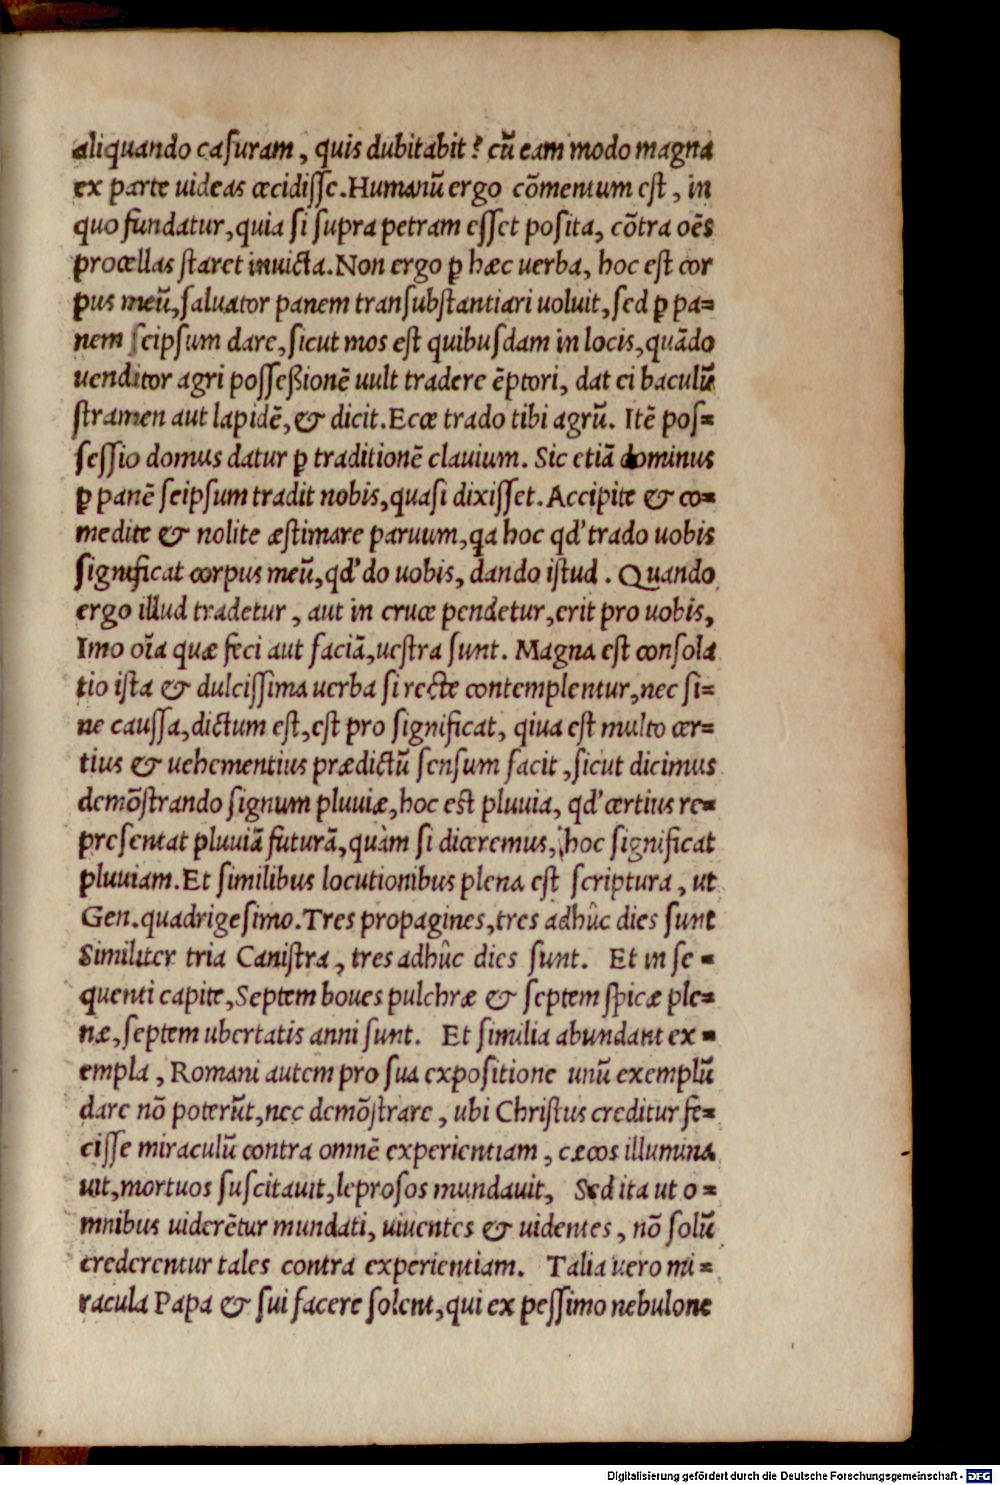 aliquando casuram, quis dubitabit? cū eam modo magna
ex parte uideas cecidisse. Humanū ergo cōmentum est, in
quo fundatur, quia si supra petram esset posita, cōtra oēs
procellas staret inuicta. Non ergo ꝑ hæc uerba, hoc est cor
pus meū, saluator panem transubstantiari uoluit, sed ꝑ pa=
nem seipsum dare, sicut mos est quibusdam in locis, quādo
uenditor agri possessionē uult tradere ēptori, dat ei baculū
stramen aut lapidē, & dicit. Ecce trado tibi agrū. Itē pos=
sessio domus datur ꝑ traditionē clauium. Sic etiā dominus
ꝑ panē seipsum tradit nobis, quasi dixisset. Accipite & co=
medite & nolite æstimare paruum, qa hoc qd' trado uobis
significat corpus meū, qd' do uobis, dando istud. Quando
ergo illud tradetur, aut in cruce pendetur, erit pro uobis,
Imo oīa quæ feci aut faciā, uestra sunt. Magna est consola
tio ista & dulcissima uerba si recte contemplentur, nec si=
ne caussa, dictum est, est pro significat, qiua est multo cer=
tius & uehementius prædictū sensum facit, sicut dicimus
demōstrando signum pluuiæ, hoc est pluuia, qd' certius re=
presentat pluuiā futurā, quàm si diceremus, hoc significat
pluuiam. Et similibus locutionibus plena est scriptura, ut
Gen. quadrigesimo. Tres propagines, tres adhûc dies sunt
Similiter tria Canistra, tres adhûc dies sunt. Et in se=
quenti capite, Septem boues pulchræ & septem spicæ ple=
næ, septem ubertatis anni sunt. Et similia abundant ex=
empla, Romani autem pro sua expositione unū exemplū
dare nō poterūt, nec demōstrare, ubi Christus creditur fe=
cisse miraculū contra omnē experientiam, cæcos illumina
uit, mortuos suscitauit, leprosos mundauit, Sed ita ut o=
mnibus uiderētur mundati, uiuentes & uidentes, nō solū
crederentur tales contra experientiam. Talia uero mi=
racula Papa & sui facere solent, qui ex pessimo nebulone
Digitalisierung gefördert durch die Deutsche Forschungsgemeinschaft - DFG